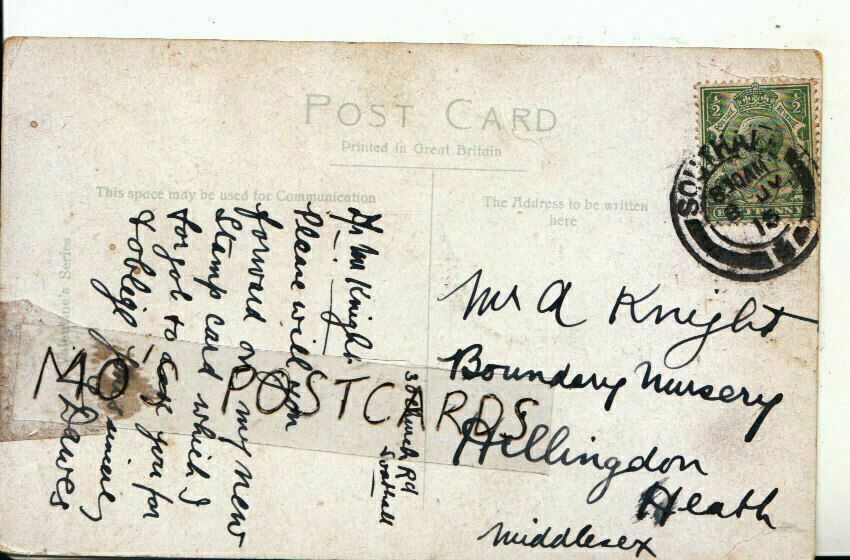 POST CARD
Printed in Great Britain
This space may be used for Communication
The Address to be written
here
Valentine's Series
½ ½
SOUTHALL
8 30 AM
8 JY
15
30 Church Rd
Southall
Mr Knight
Please will you
forward on my new
Stamp card which I
forgot to ask you for
& oblige yours sincerely
Dawes
Mr A Knight
Boundary Nursery
Hillingdon
Heath
Middlesex
MO POSTCARDS